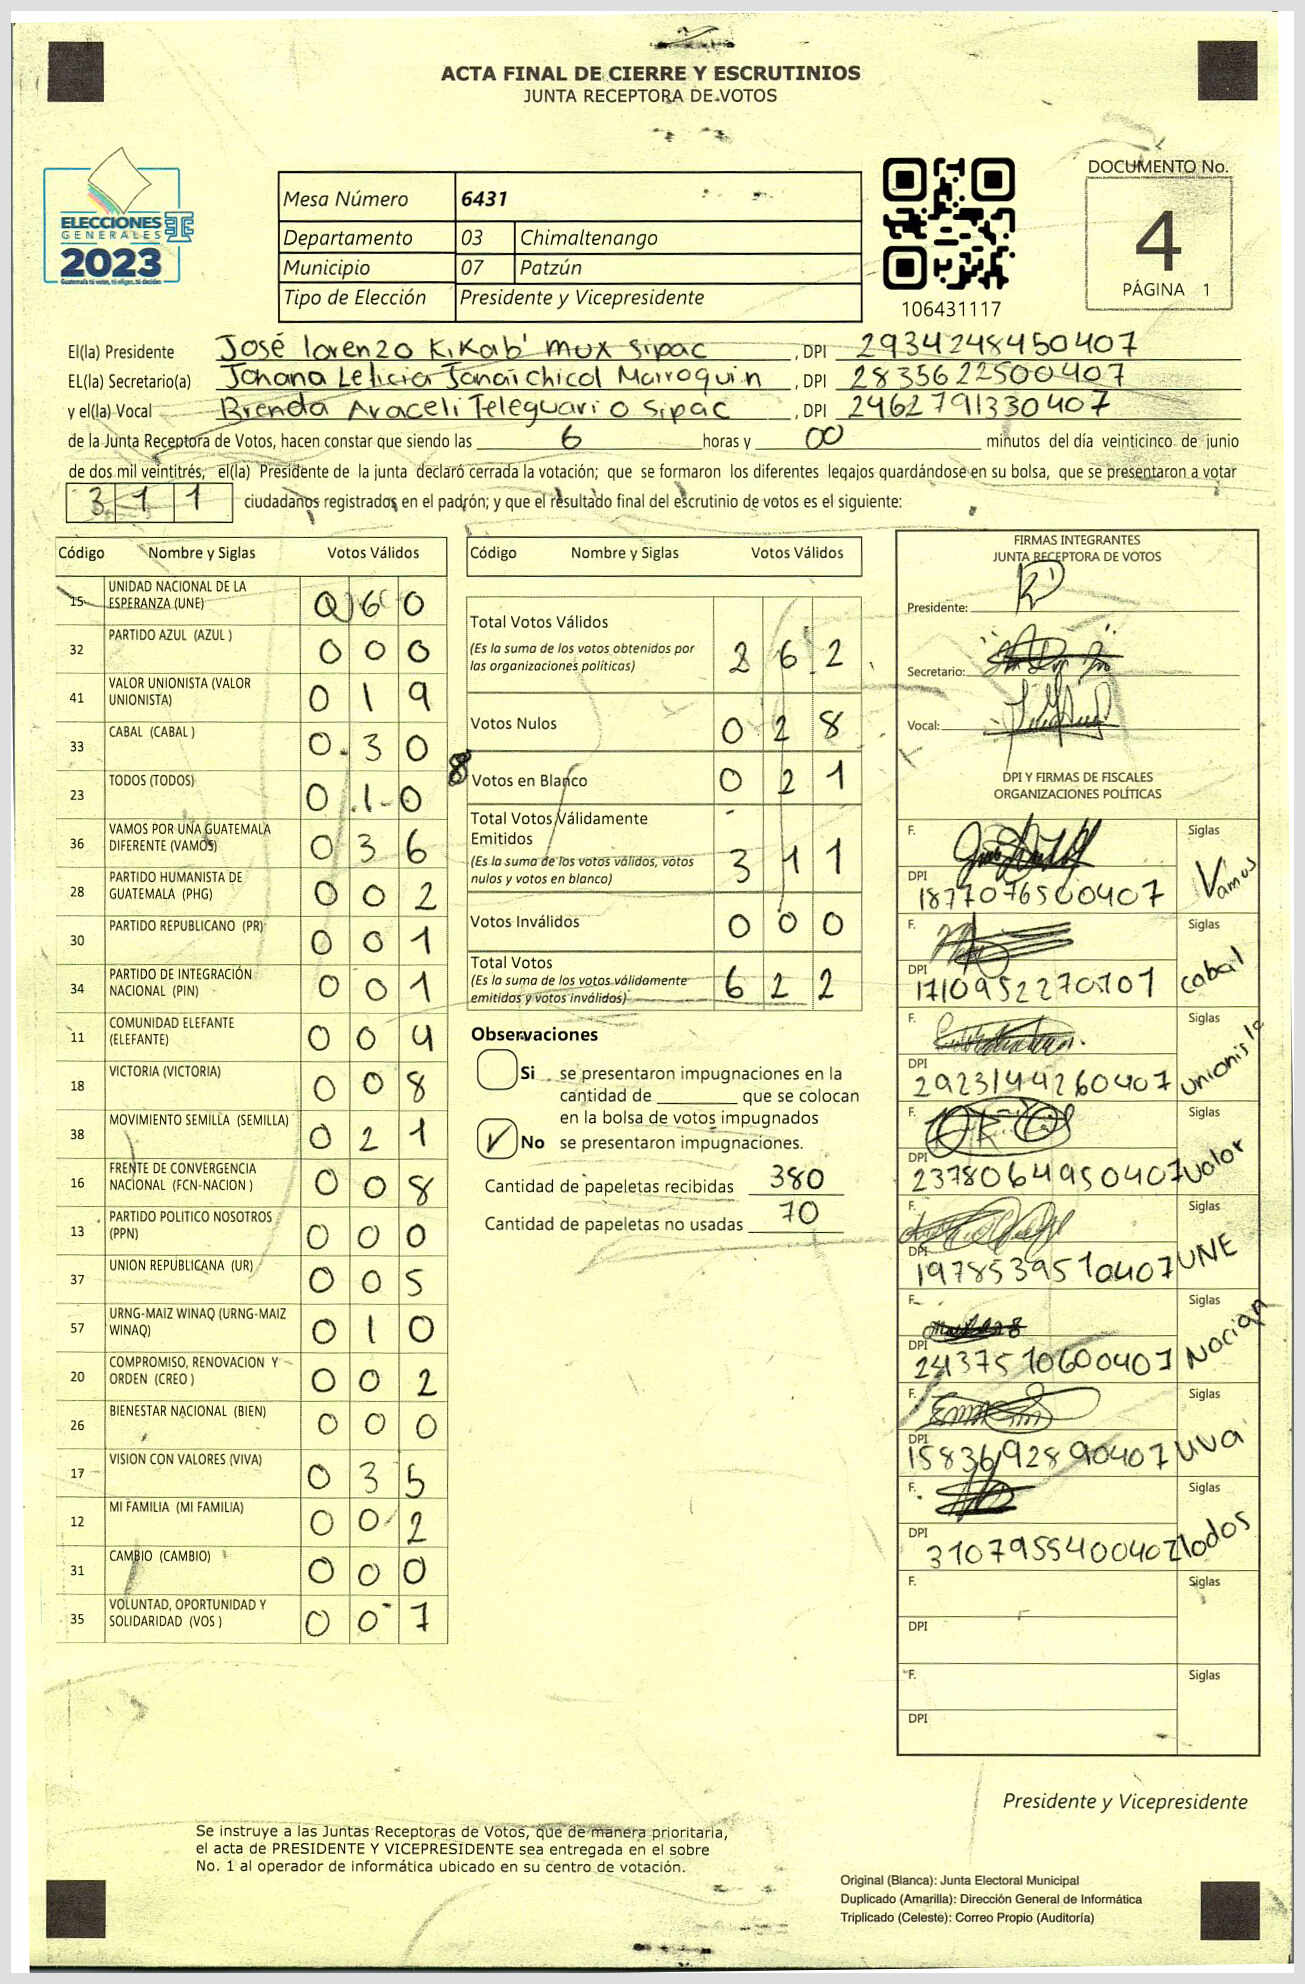 ACTA FINAL DE CIERRE Y ESCRUTINIOS
JUNTA RECEPTORA DE VOTOS
ELECCIONES
GENERALES
2023
Guatemala tú votas, tú eliges, tú decides
Mesa Número 6431
Departamento 03 Chimaltenango
Municipio 07 Patzún
Tipo de Elección Presidente y Vicepresidente
106431117
DOCUMENTO No.
4
PÁGINA 1
El(la) Presidente José lorenzo Kikab' Mux Sipac , DPI 2934248450407
EL(la) Secretario(a) Johana Leticia Janaí Chicol Marroquin , DPI 2835622500407
y el(la) Vocal Brenda Araceli Teleguario Sipac , DPI 2462791330407
de la Junta Receptora de Votos, hacen constar que siendo las 6 horas y 00 minutos del día veinticinco de junio
de dos mil veintitrés, el(la) Presidente de la junta declaró cerrada la votación; que se formaron los diferentes legajos quardándose en su bolsa, que se presentaron a votar
311 ciudadanos registrados en el padrón; y que el resultado final del escrutinio de votos es el siguiente:
Código Nombre y Siglas Votos Válidos
15 UNIDAD NACIONAL DE LA ESPERANZA (UNE) 060
32 PARTIDO AZUL (AZUL ) 000
41 VALOR UNIONISTA (VALOR UNIONISTA) 019
33 CABAL (CABAL ) 030
23 TODOS (TODOS) 010
36 VAMOS POR UNA GUATEMALA DIFERENTE (VAMOS) 036
28 PARTIDO HUMANISTA DE GUATEMALA (PHG) 002
30 PARTIDO REPUBLICANO (PR) 001
34 PARTIDO DE INTEGRACIÓN NACIONAL (PIN) 001
11 COMUNIDAD ELEFANTE (ELEFANTE) 004
18 VICTORIA (VICTORIA) 008
38 MOVIMIENTO SEMILLA (SEMILLA) 021
16 FRENTE DE CONVERGENCIA NACIONAL (FCN-NACION ) 008
13 PARTIDO POLITICO NOSOTROS (PPN) 000
37 UNION REPUBLICANA (UR) 005
57 URNG-MAIZ WINAQ (URNG-MAIZ WINAQ) 010
20 COMPROMISO, RENOVACION Y ORDEN (CREO ) 002
26 BIENESTAR NACIONAL (BIEN) 000
17 VISION CON VALORES (VIVA) 035
12 MI FAMILIA (MI FAMILIA) 002
31 CAMBIO (CAMBIO) 000
35 VOLUNTAD, OPORTUNIDAD Y SOLIDARIDAD (VOS ) 007
Código Nombre y Siglas Votos Válidos
Total Votos Válidos
(Es la suma de los votos obtenidos por
las organizaciones políticas) 262
Votos Nulos 028
8
Votos en Blanco 021
Total Votos Válidamente
Emitidos
(Es la suma de los votos válidos, votos
nulos y votos en blanco) 311
Votos Inválidos 000
Total Votos
(Es la suma de los votos válidamente
emitidos y votos inválidos) 622
Observaciones
Si se presentaron impugnaciones en la
cantidad de ________ que se colocan
en la bolsa de votos impugnados
No se presentaron impugnaciones.
Cantidad de papeletas recibidas 380
Cantidad de papeletas no usadas 70
FIRMAS INTEGRANTES
JUNTA RECEPTORA DE VOTOS
Presidente:
Secretario:
Vocal:
DPI Y FIRMAS DE FISCALES
ORGANIZACIONES POLÍTICAS
F. Siglas
DPI 1877076500407 Vamos
F. Siglas
DPI 1710952270701 cabal
F. Siglas
DPI 2923144260407 unionista
F. Siglas
DPI 2378064950407 valor
F. Siglas
DPI 1978539510407 UNE
F. Siglas
DPI 2437510600407 Nacion
F. Siglas
DPI 1583692890407 viva
F. Siglas
DPI 3107955400407 Todos
F. Siglas
DPI
F. Siglas
DPI
Presidente y Vicepresidente
Se instruye a las Juntas Receptoras de Votos, que de manera prioritaria,
el acta de PRESIDENTE Y VICEPRESIDENTE sea entregada en el sobre
No. 1 al operador de informática ubicado en su centro de votación.
Original (Blanca): Junta Electoral Municipal
Duplicado (Amarilla): Dirección General de Informática
Triplicado (Celeste): Correo Propio (Auditoría)